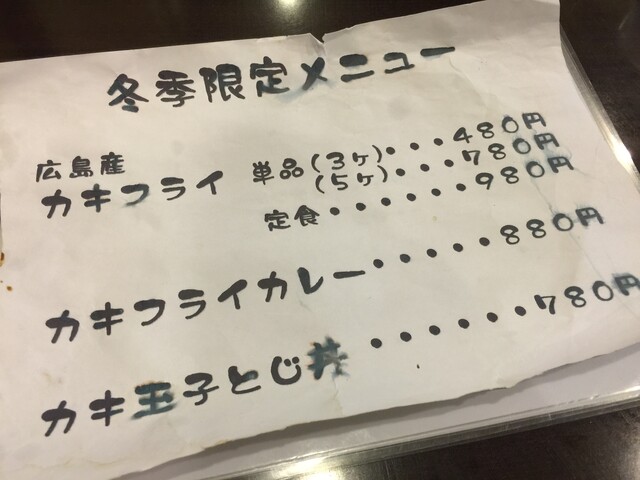 冬季限定メニュー
広島産
カキフライ 単品(3ヶ)・・・480円
(5ヶ)・・・780円
定食・・・・・・980円
カキフライカレー・・・・・880円
カキ玉子とじ丼・・・・・・780円